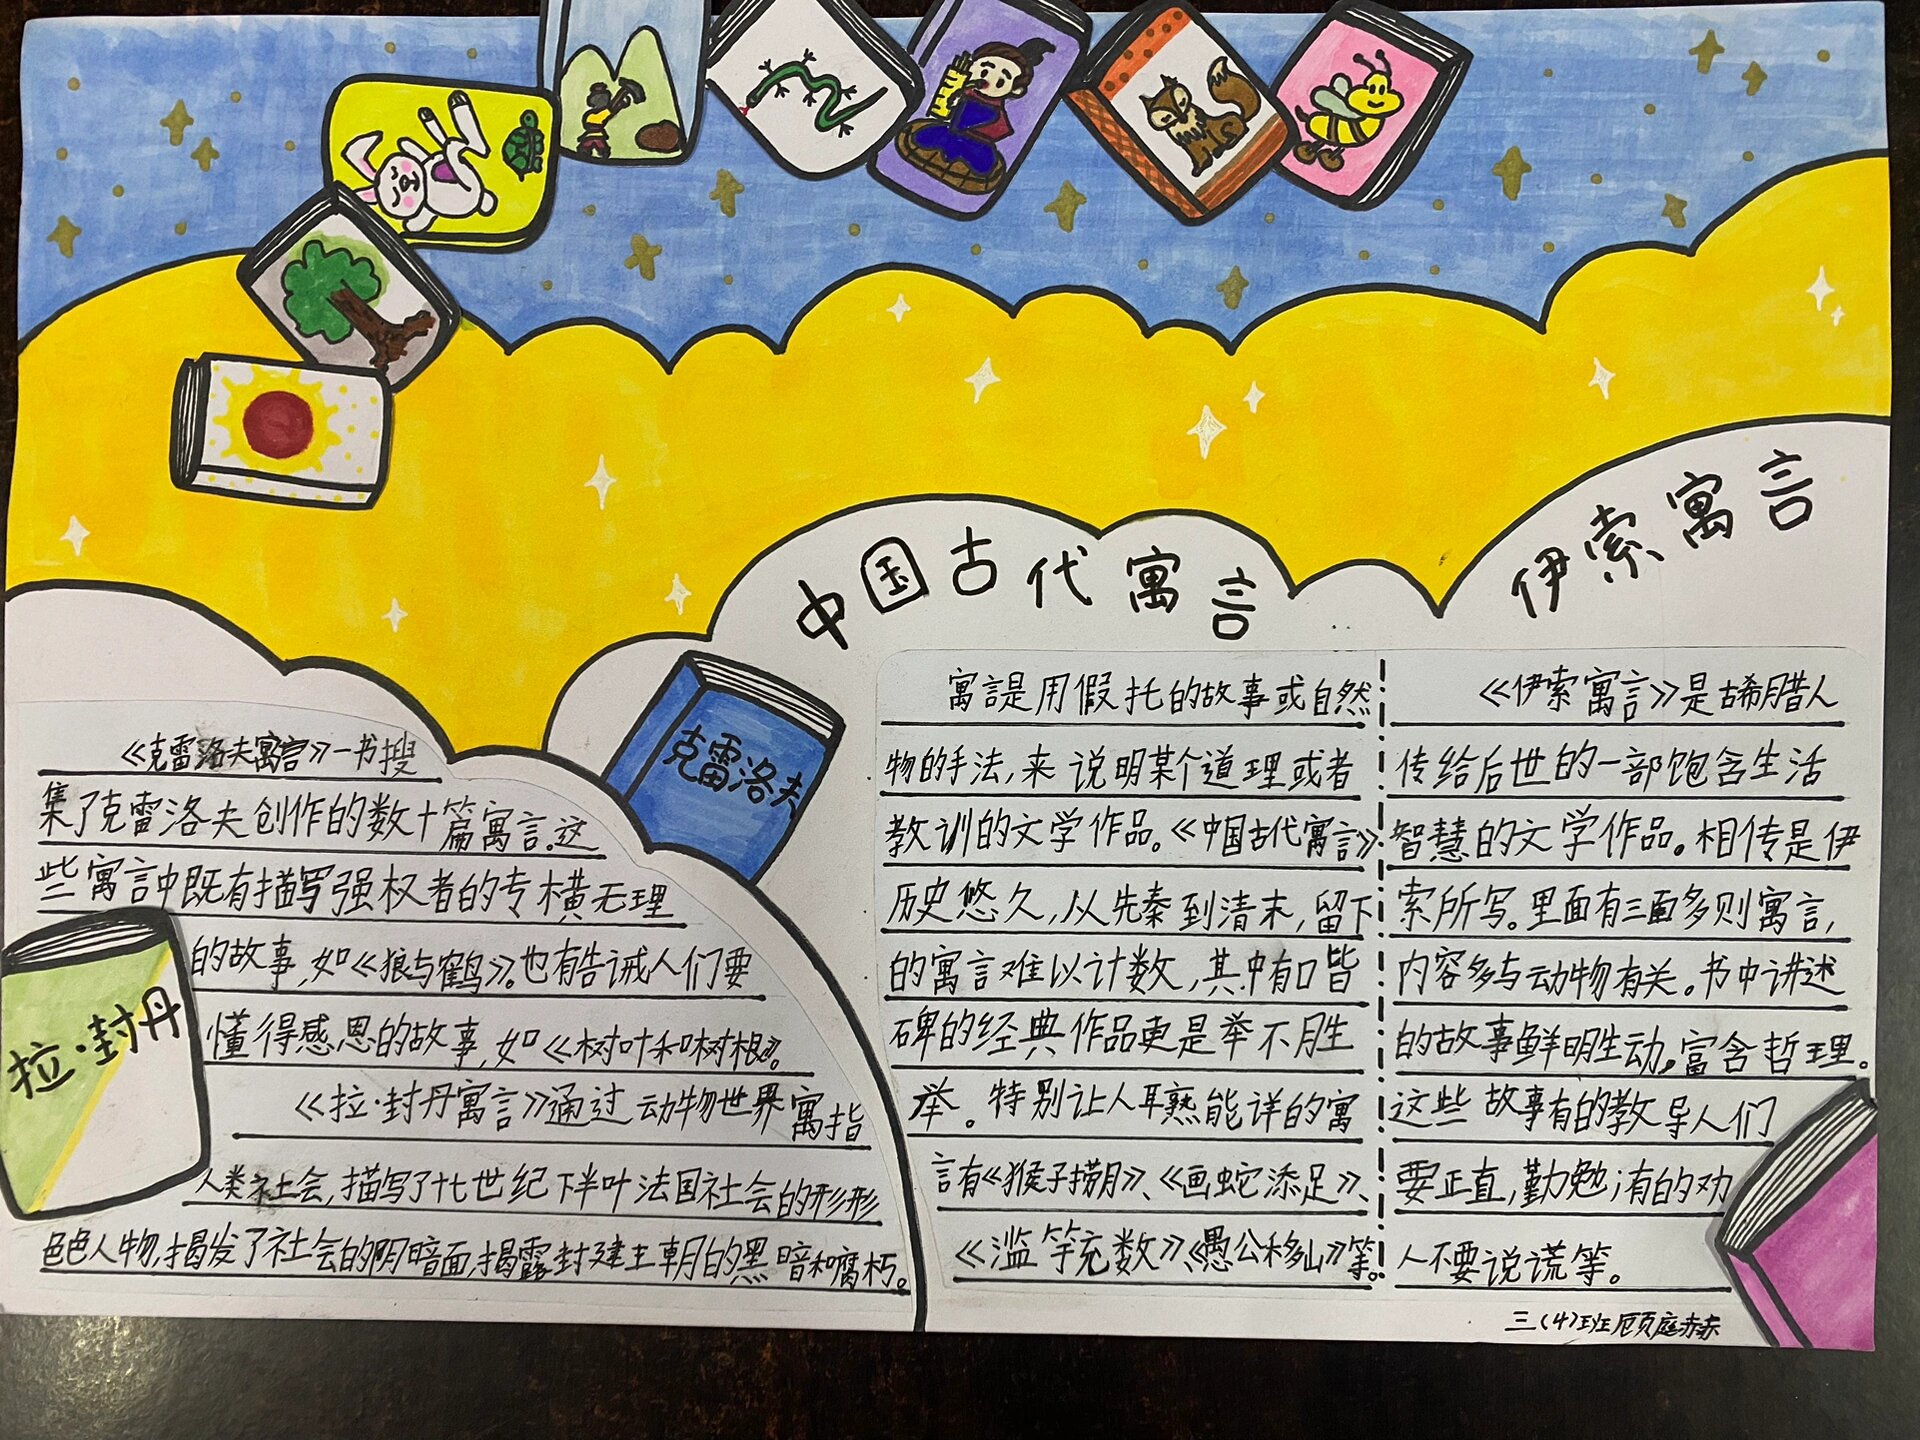 中国古代寓言
伊索寓言
克雷洛夫
拉·封丹
《克雷洛夫寓言》一书搜
集了克雷洛夫创作的数十篇寓言。这
些寓言中既有描写强权者的专横无理
的故事,如《狼与鹤》。也有告诫人们要
懂得感恩的故事,如《树叶和树根》。
《拉·封丹寓言》通过动物世界寓指
人类社会,描写了十七世纪下半叶法国社会的形形
色色人物,揭发了社会的阴暗面,揭露封建王朝的黑暗和腐朽。
寓言是用假托的故事或自然
物的手法,来说明某个道理或者
教训的文学作品。《中国古代寓言》
历史悠久,从先秦到清末,留下
的寓言难以计数,其中有口皆
碑的经典作品更是举不胜
举。特别让人耳熟能详的寓
言有《猴子捞月》、《画蛇添足》、
《滥竽充数》、《愚公移山》等。
《伊索寓言》是古希腊人
传给后世的一部饱含生活
智慧的文学作品。相传是伊
索所写。里面有三百多则寓言,
内容多与动物有关。书中讲述
的故事鲜明生动,富含哲理。
这些故事有的教导人们
要正直,勤勉;有的劝
人不要说谎等。
三(4)班顾庭赫